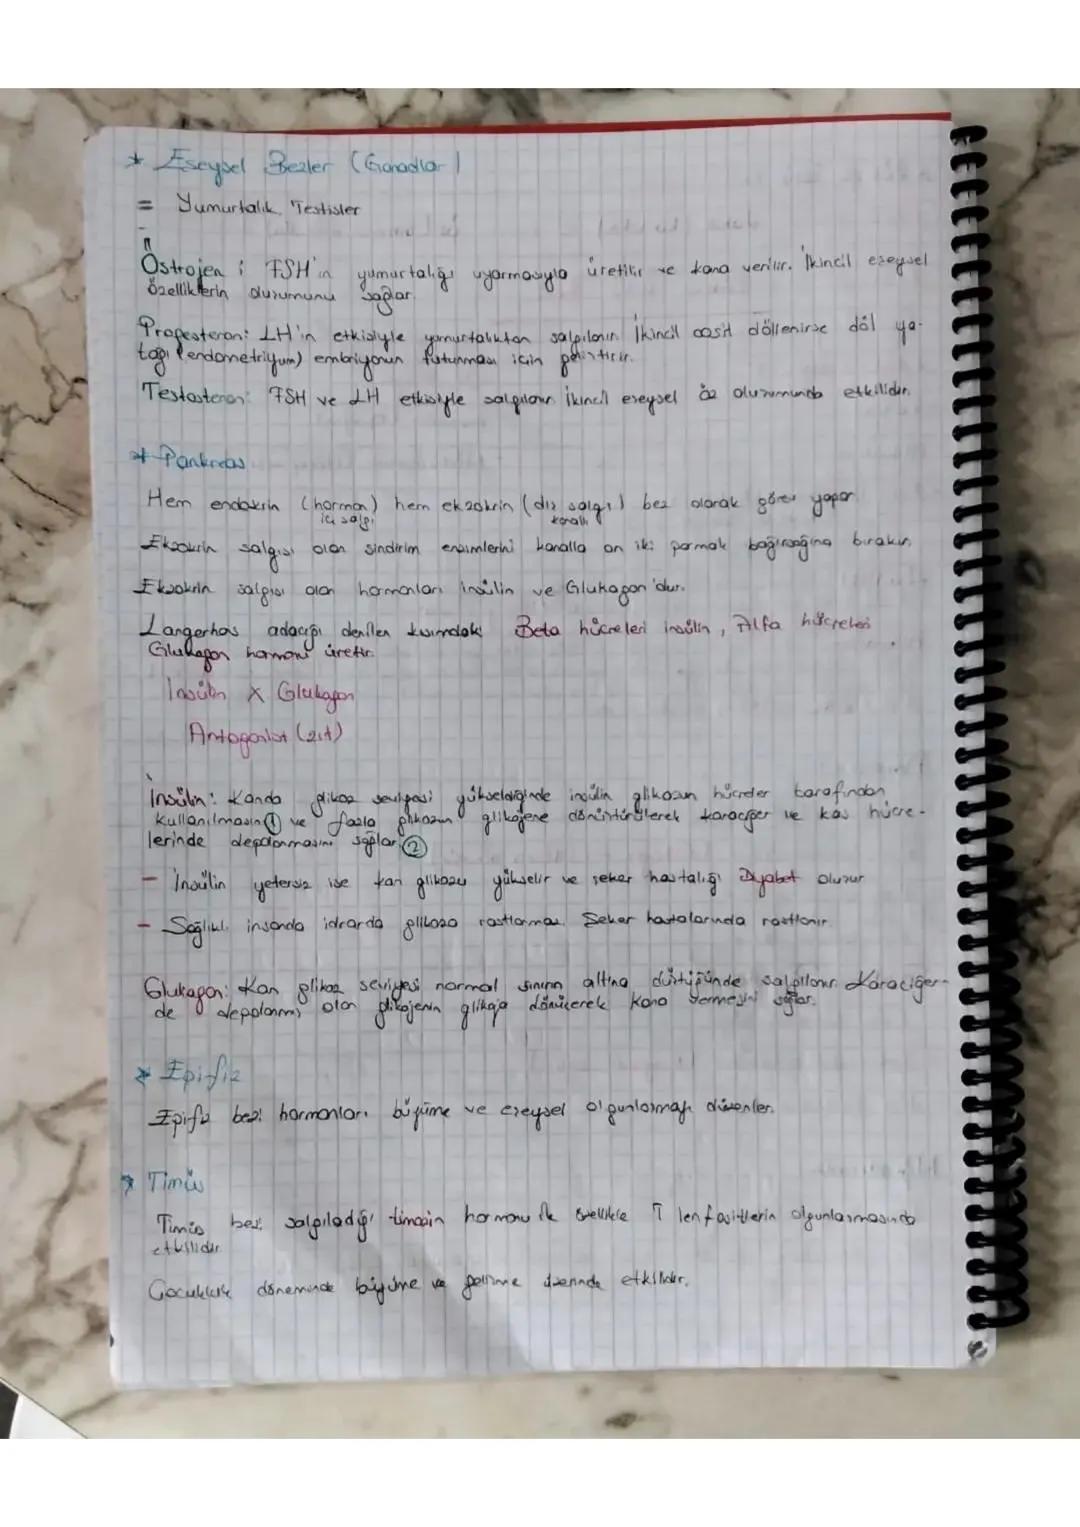 * Eseysel Bezler (Gonadlar)
= Yumurtalık, Testisler
Östrojen : FSH'ın yumurtalığı uyarmasıyla üretilir ve kana verilir. İkincil eseysel
özelliklerin oluşumunu sağlar.
Progesteron: LH'ın etkisiyle yumurtalıktan salgılanır. İkincil oosit döllenirse döl ya-
tağı (endometriyum) embriyonun tutunması için geliştirir.
Testosteron: FSH ve LH etkisiyle salgılanır. İkincil eseysel öz oluşumunda etkilidir.
* Pankreas
Hem endokrin (hormon) hem ekzokrin (dış salgı) bez olarak görev yapar.
iç salgı kanallı
Ekzokrin salgısı olan sindirim enzimlerini kanalla on iki parmak bağırsağına bırakır.
Ekzokrin salgısı olan hormonları İnsülin ve Glukagon'dur.
Langerhas adacığı denilen kısımdaki Beta hücreleri insülin, Alfa hücreleri
Glukagon hormonu üretir.
İnsülin X Glukagon
Antagonist (zıt)
İnsülin: Kanda glikoz seviyesi yükseldiğinde insülin glikozun hücreler tarafından
kullanılmasını ① ve fazla glikozun glikojene dönüştürülerek karaciğer ve kas hücre-
lerinde depolanmasını sağlar ②
- İnsülin yetersiz ise kan glikozu yükselir ve şeker hastalığı Diyabet oluşur
- Sağlıklı insanda idrarda glikoza rastlanmaz. Şeker hastalarında rastlanır.
Glukagon: Kan glikoz seviyesi normal sınırın altına düştüğünde salgılanır. Karaciğer-
de depolanmış olan glikojenin glikoja dönüşerek kana vermesini sağlar.
* Epifiz
Epifiz bezi hormonları büyüme ve eseysel olgunlaşmayı düzenler.
* Timüs
Timüs bezi salgıladığı timosin hormonu ile özellikle T lenfositlerin olgunlaşmasında
etkilidir.
Çocukluk döneminde büyüme ve gelişme üzerinde etkilidir.